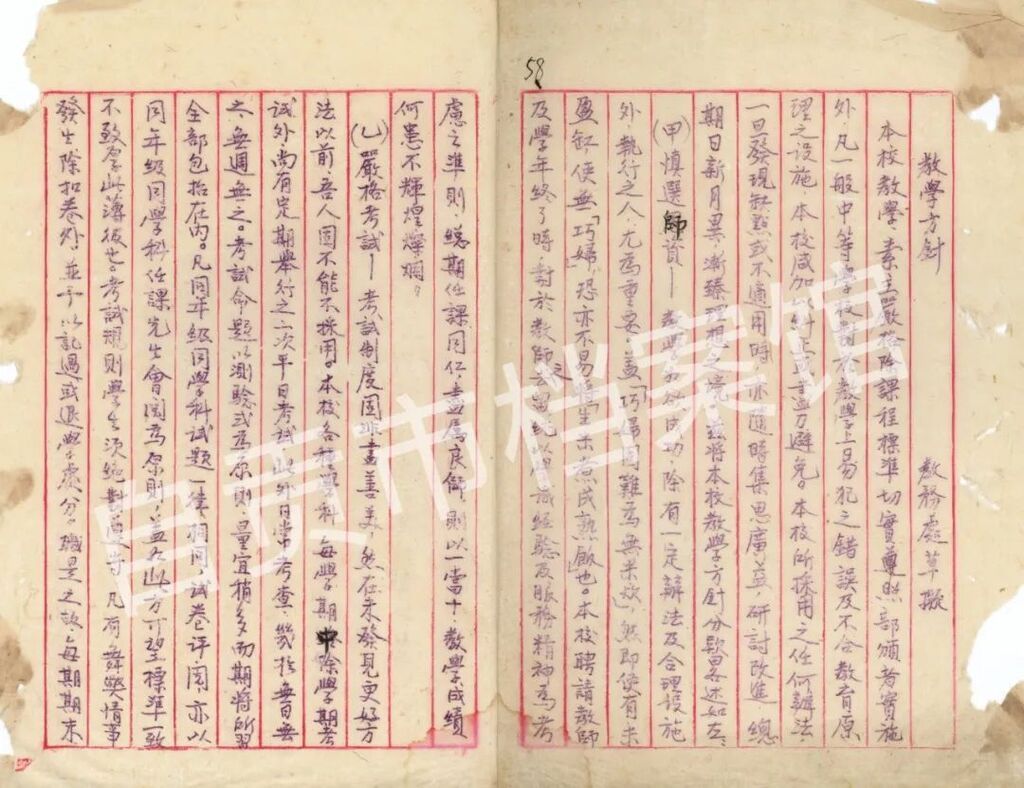 58
教學方針 教務處草擬
本校教學，素主嚴格除課程標準切實遵照部頒者實施
外凡一般中等學校對於教學上易犯之錯誤及不合教育原
理之設施，本校咸加以糾正或盡力避免。本校所採用之任何辦法，
一旦發現缺點或不適用時，亦隨時集思廣益，研討改進，總
期日新月異，漸臻理想之境，茲將本校教學方針分款畧述如左：
(甲)慎選師資— 教學之欲成功，除有一定辦法及合理設施
外，執行之人，尤為重要。蓋「巧婦固難為無米炊」，然即使有米
盈缸，使無「巧婦」，恐亦不易將生米煮成熟飯也。本校聘請教師
及學年終了時，對於教師之去留，純以學識經驗及服務精神為考
慮之準則，總期任課同仁，盡屬良師，則以一當十，教學成績
何患不輝煌燦爛。
(乙)嚴格考試— 考試制度固非盡善美，然在未發見更好方
法以前，吾人固不能不採用。本校各種學科，每學期中除學期考
試外，尚有定期舉行之二次平日考試，此外日常考查，幾於無日無
之，無週無之。考試命題以測驗式為原則，量宜稍多，而期將所習
全部包括在內。凡同年級同學科試題一律相同，試卷評閱，亦以
同年級同學科任課先生會閱為原則，蓋如此方可望標準致
不致厚此薄彼也。考試規則學生須絕對遵守，凡有舞弊情事
發生，除扣卷外，並予以記過或退學處分。職是之故，每期期末
自贡市档案馆